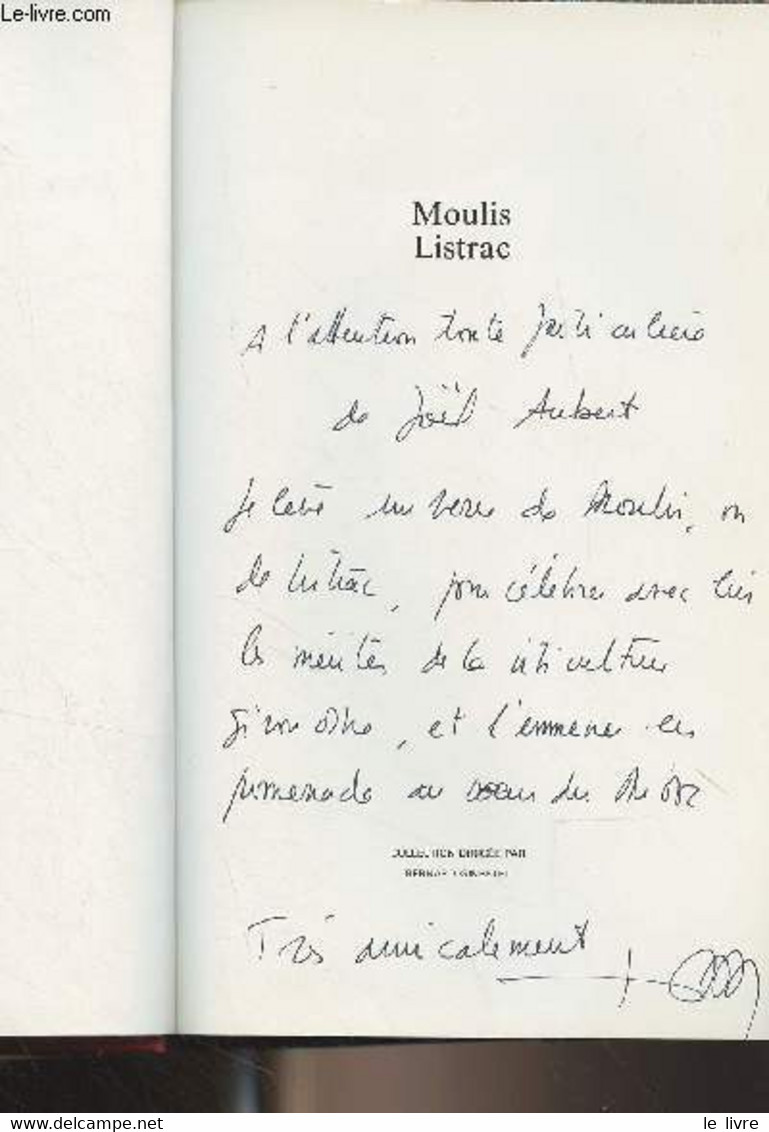 Le-livre.com
Moulis
Listrac
A l'attention toute particulière
de Joël Aubert
Je lève un verre de Moulis, ou
de Listrac, pour célébrer avec lui
les mérites de la viticulture
girondine, et l'emmener en
promenade au coeur du Médoc
COLLECTION DIRIGÉE PAR
BERNARD GINESTET
Très amicalement
le livre